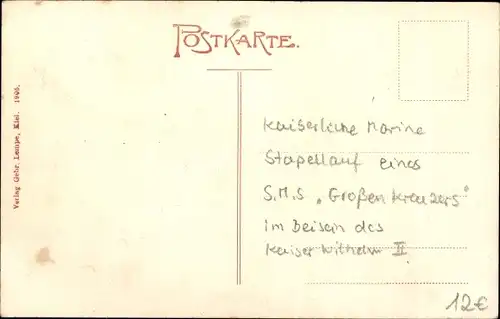 POSTKARTE.
Verlag Gebr. Lempe, Kiel. 1906.
Kaiserliche Marine
Stapellauf eines
S.M.S „Großen Kreuzers"
im Beisein des
Kaiser Wilhelm II
12€